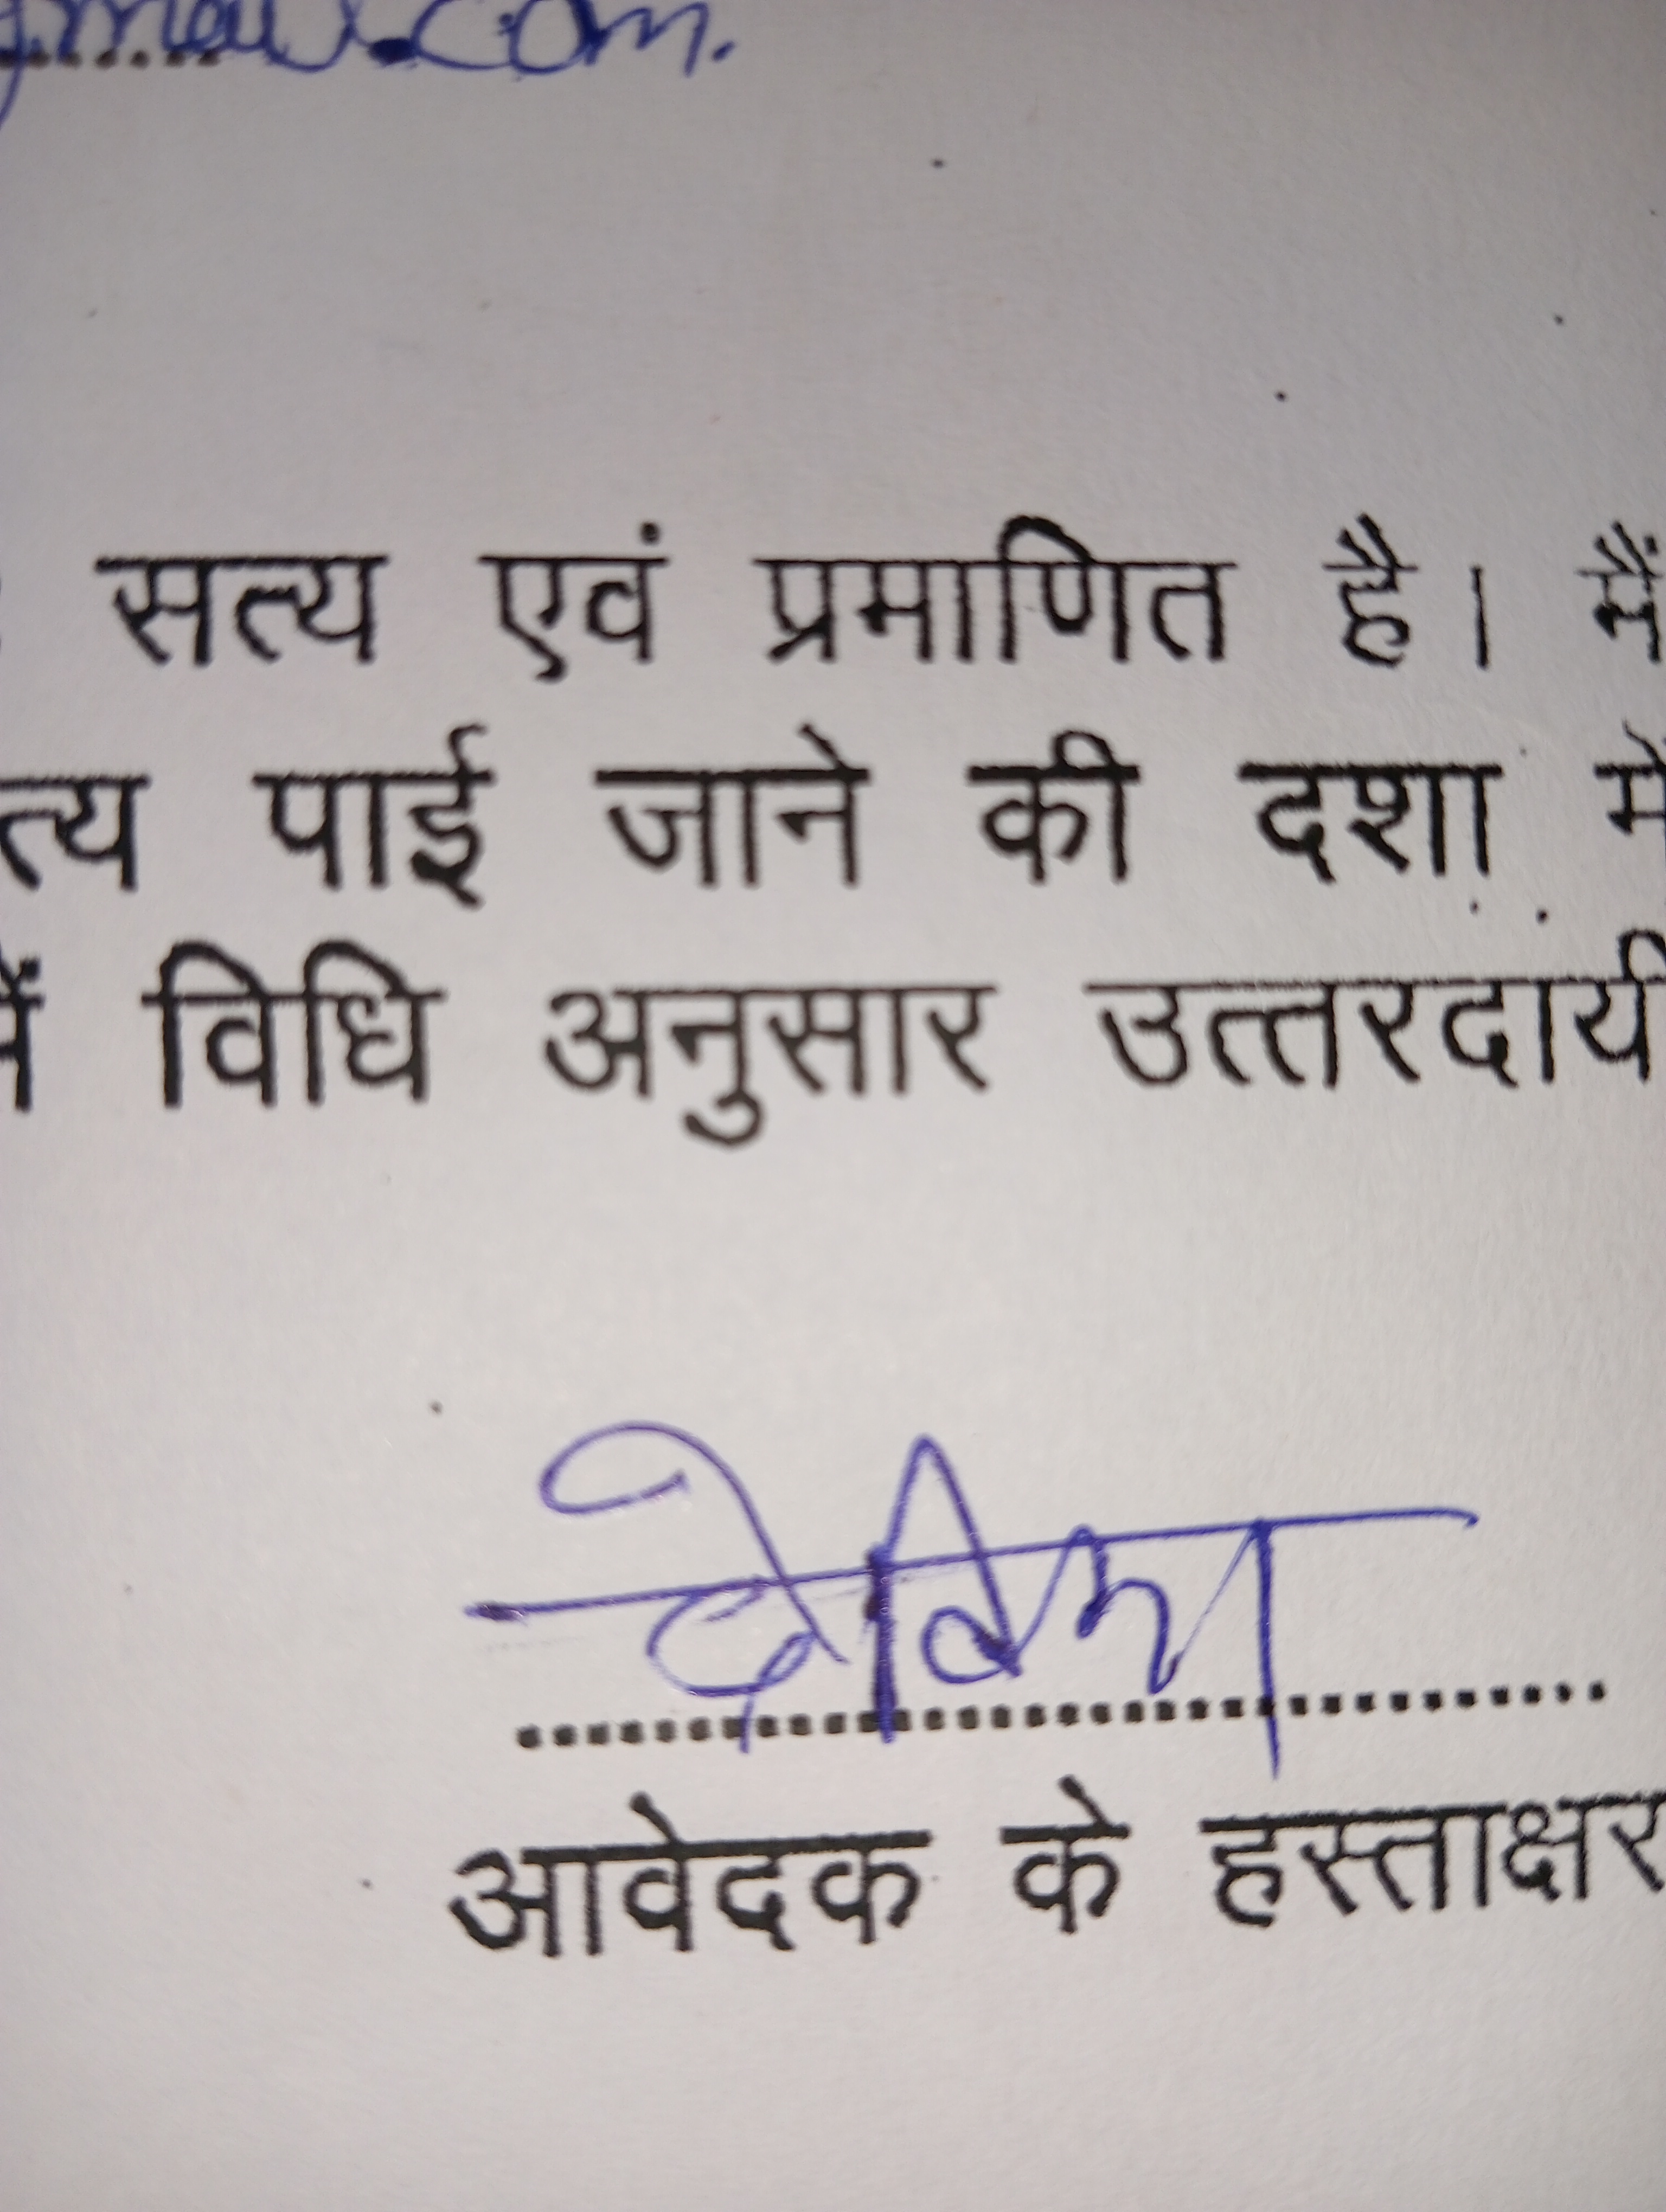 gmail.com.
सत्य एवं प्रमाणित है। मैं
त्य पाई जाने की दशा में
में विधि अनुसार उत्तरदायी
आवेदक के हस्ताक्षर